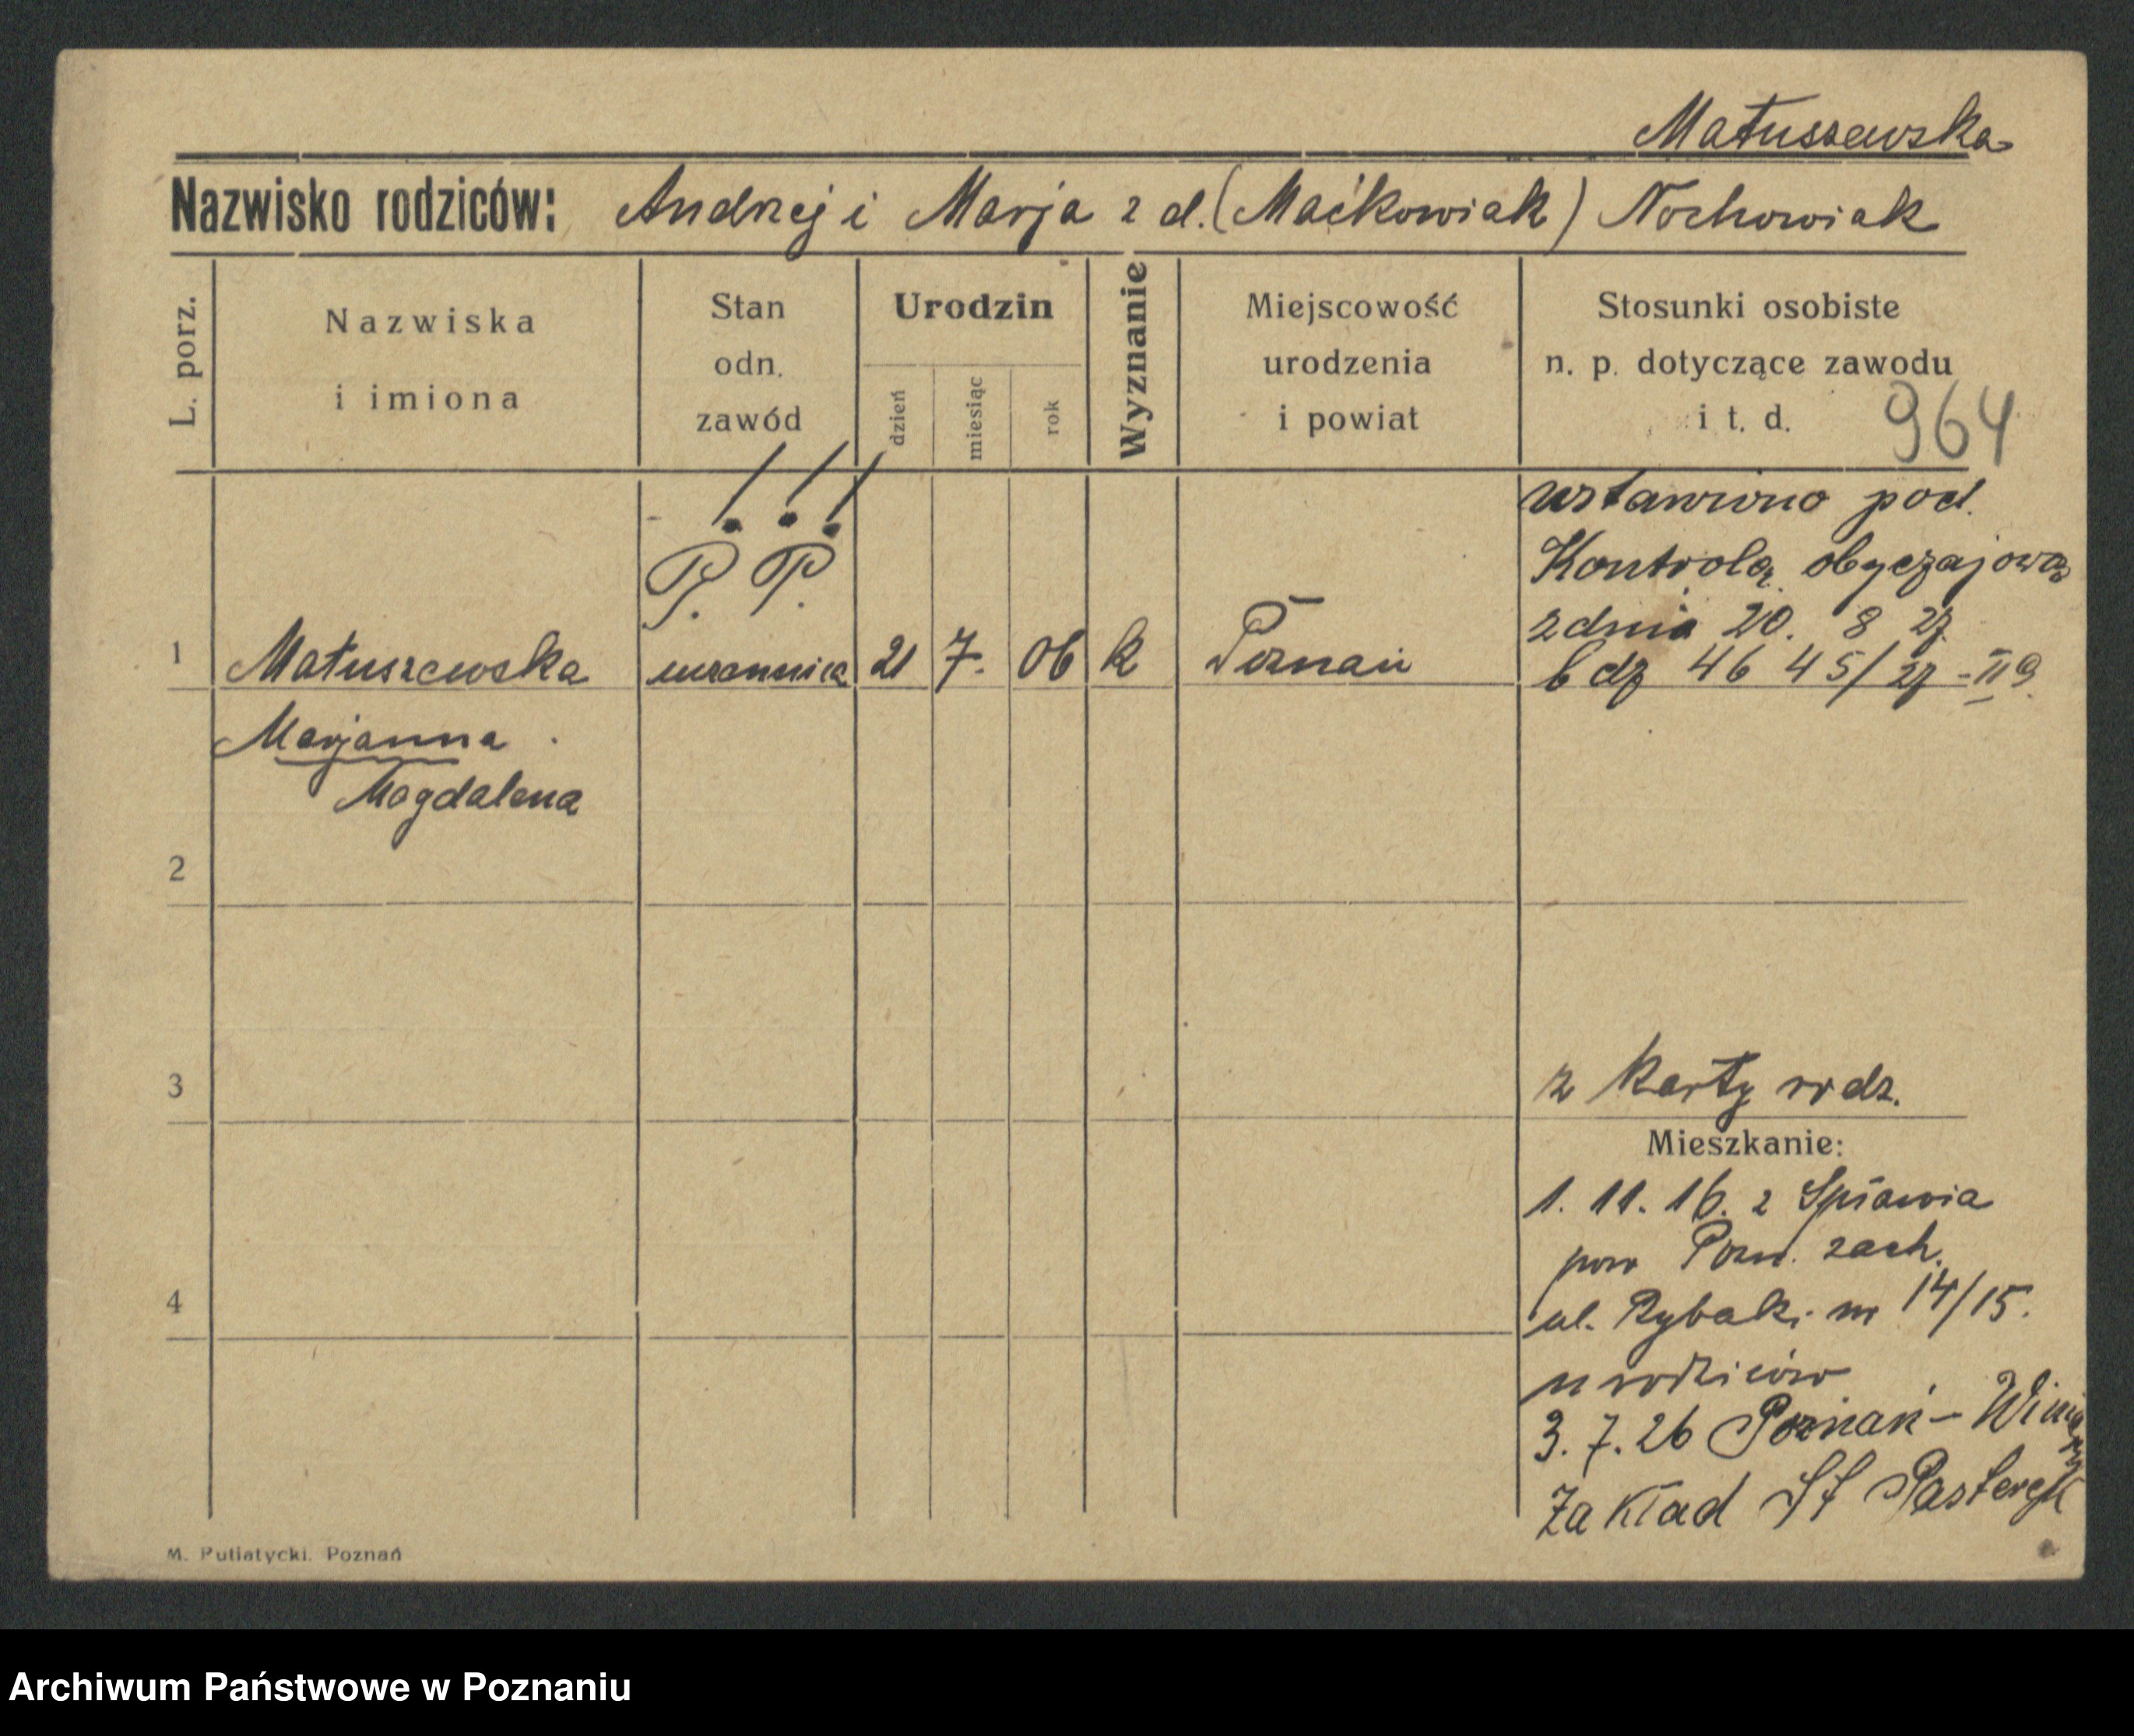 Matuszewska
Nazwisko rodziców: Andrzej i Marja z d. (Maćkowiak) Nochowiak
L. porz.
Nazwiska
i imiona
Stan
odn.
zawód
Urodzin
dzień
miesiąc
rok
Wyznanie
Miejscowość
urodzenia
i powiat
Stosunki osobiste
n. p. dotyczące zawodu
i t. d.
964
!!!
P. P.
wstawiono pod
Kontrolą obyczajową
z dnia 20. 8 27
1 Matuszewska uczennica 21 7. 06 k Poznań
l dz 4645/27 - II 9
Marjanna
Magdalena
2
3
z karty rodz.
Mieszkanie:
1. 11. 16. z Spławia
pow Pozn. zach.
4
ul. Rybaki nr 14/15.
u rodziców
3. 7. 26 Poznań - Winiary
Zakład SS Pasterek
M. Putiatycki. Poznań
Archiwum Państwowe w Poznaniu